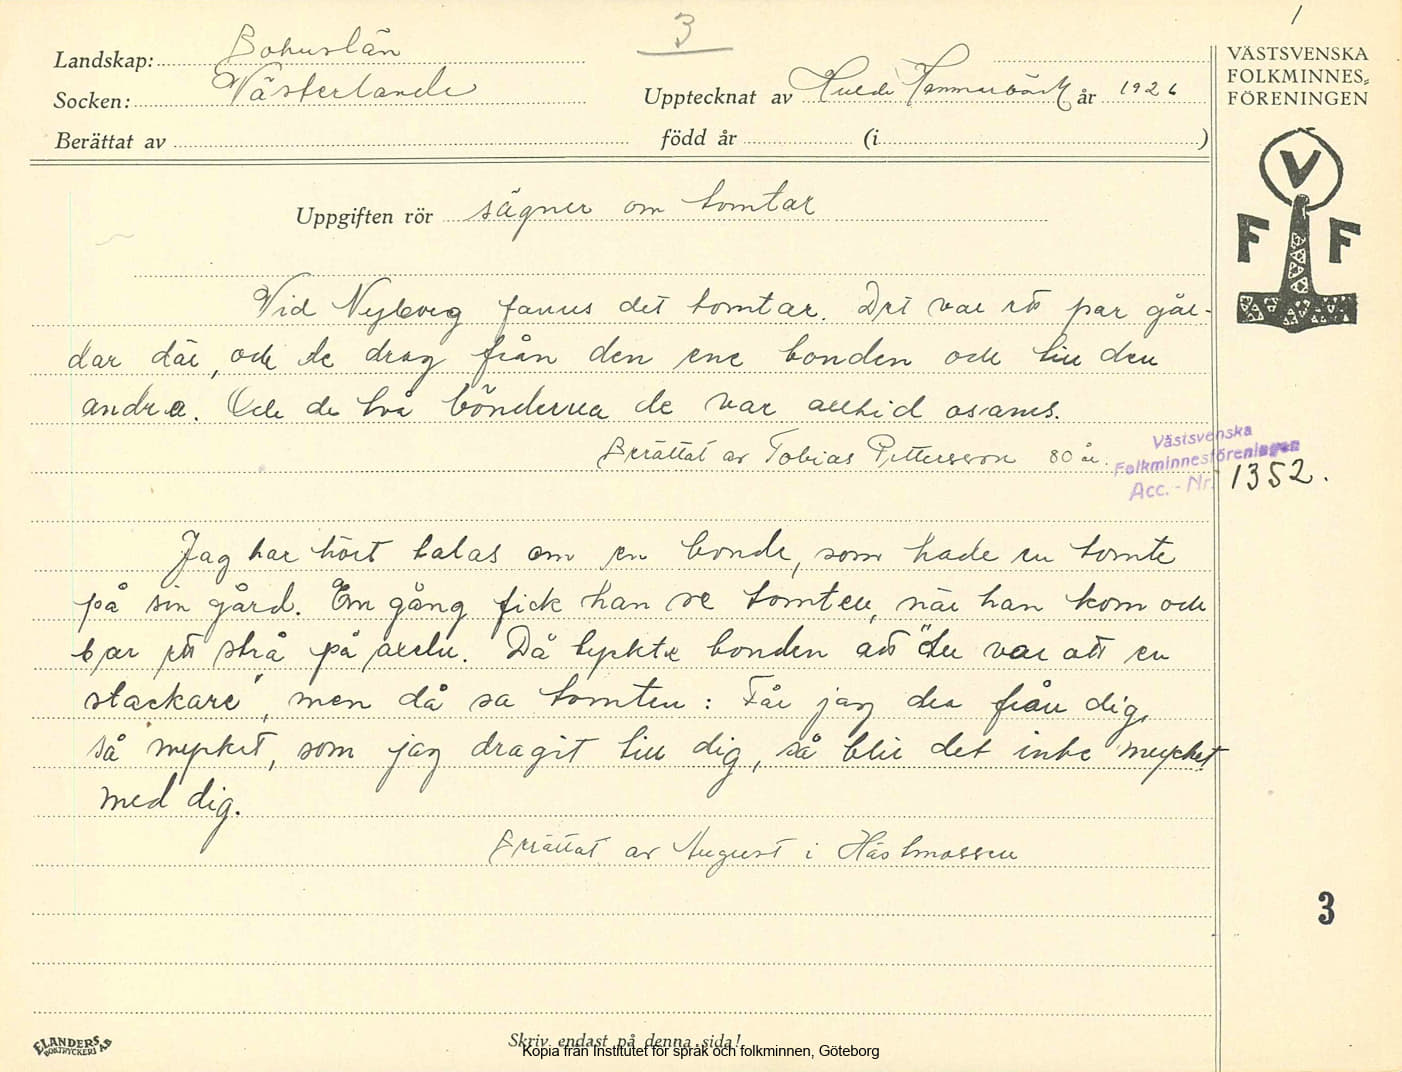 1
3
Landskap: Bohuslän
Socken: Västerlanda
Upptecknat av Hulda Hammarbäck år 1926
Berättat av född år (i )
VÄSTSVENSKA
FOLKMINNES-
FÖRENINGEN
V
F F
Uppgiften rör sägner om tomtar
Vid Nyborg fanns det tomtar. Det var ett par går-
dar där, och de drog från den ene bonden och till den
andra. Och de två bönderna de var alltid osams.
Berättat av Tobias Pettersson 80 år.
Västsvenska
Folkminnesföreningen
Acc. - Nr. 1352.
Jag har hört talas om en bonde, som hade en tomte
på sin gård. En gång fick han se tomten, när han kom och
bar ett strå på axeln. Då tyckte bonden att "du var att en
stackare", men då sa tomten: Får jag dra från dig,
så mycket, som jag dragit till dig, så blir det inte mycket
med dig.
Berättat av August i Häst­mossen
3
ELANDERS
BOKTRYCKERI AB
Skriv endast på denna sida!
Kopia från Institutet för språk och folkminnen, Göteborg